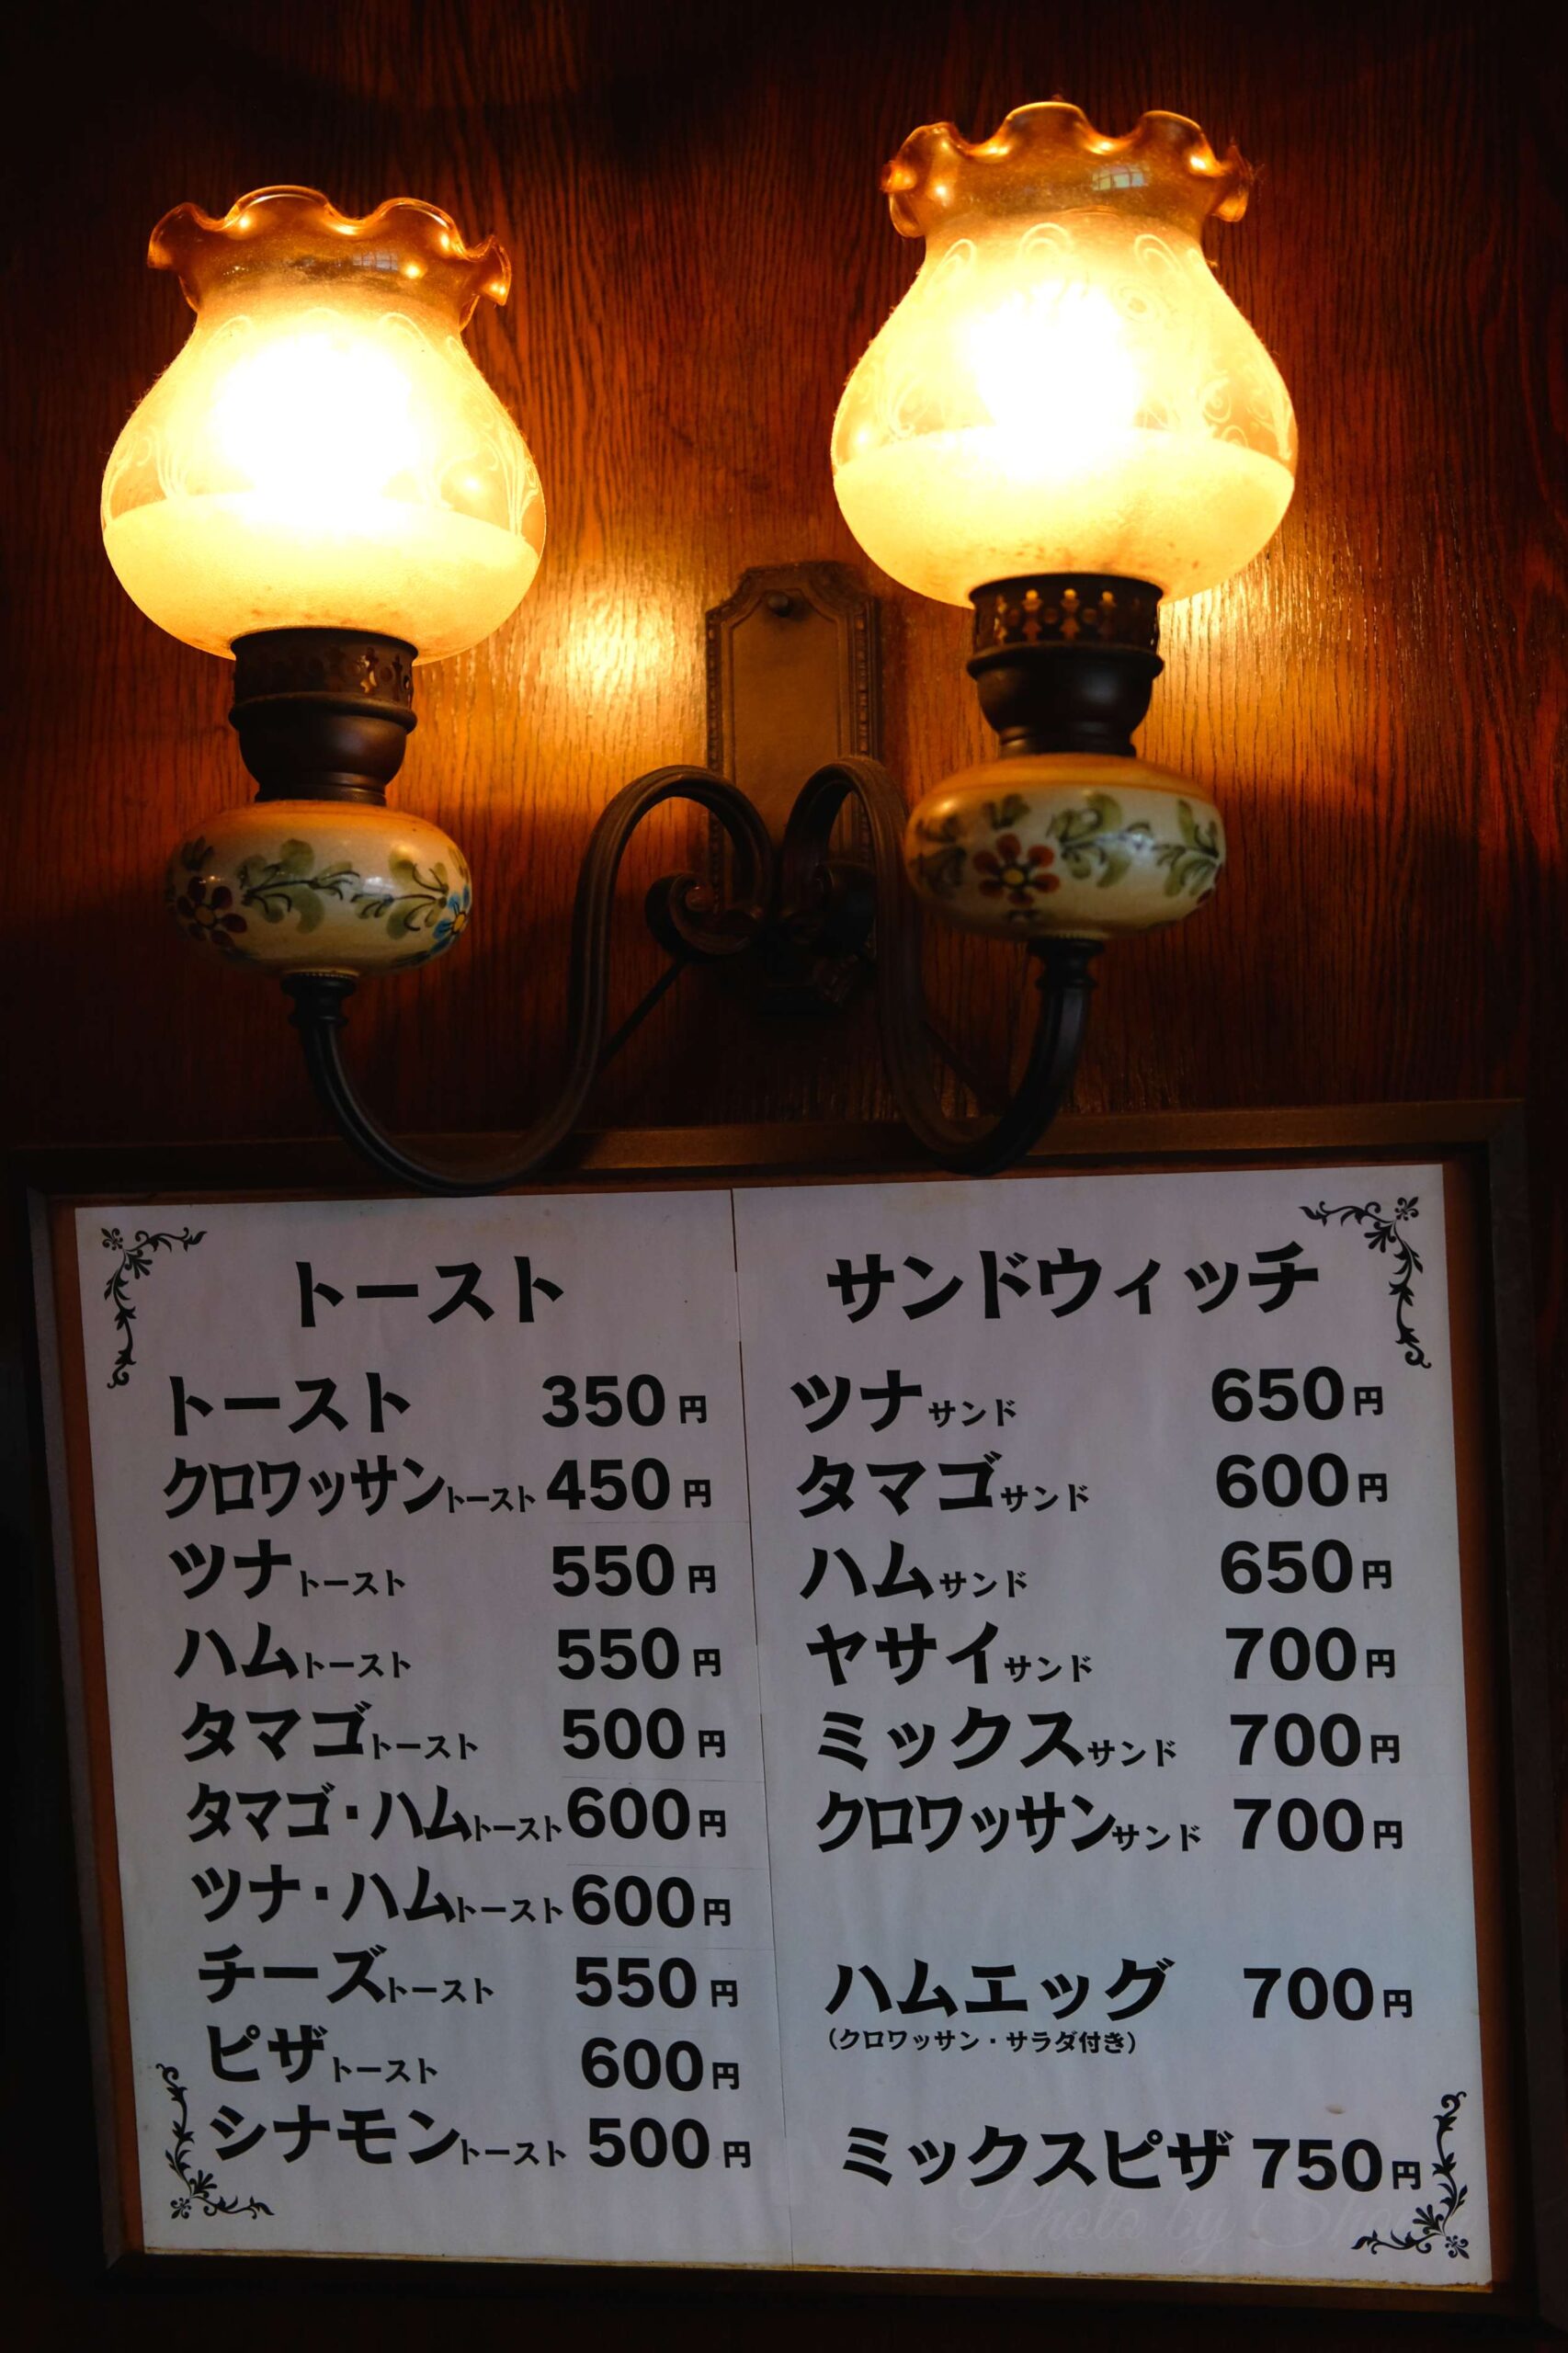 トースト
トースト 350円
クロワッサントースト 450円
ツナトースト 550円
ハムトースト 550円
タマゴトースト 500円
タマゴ・ハムトースト 600円
ツナ・ハムトースト 600円
チーズトースト 550円
ピザトースト 600円
シナモントースト 500円
サンドウィッチ
ツナサンド 650円
タマゴサンド 600円
ハムサンド 650円
ヤサイサンド 700円
ミックスサンド 700円
クロワッサンサンド 700円
ハムエッグ 700円
（クロワッサン・サラダ付き）
ミックスピザ 750円
Photo by